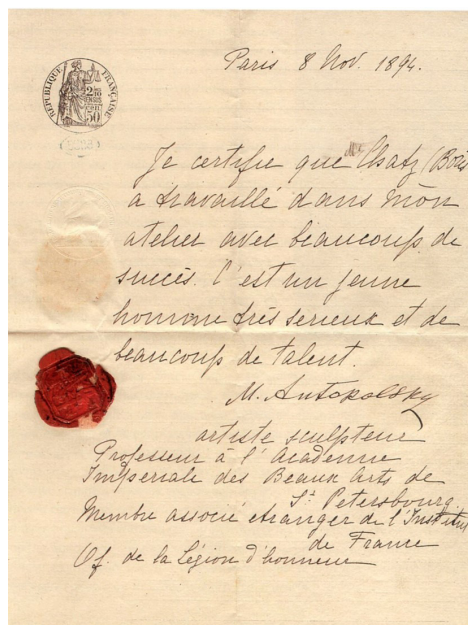 Paris 8 Nov. 1894.
RÉPUBLIQUE FRANÇAISE
50
Je certifie que Chatz (Boris
a travaillé dans mon
atelier avec beaucoup de
succès. C'est un jeune
homme très serieux et de
beaucoup de talent.
M. Antokolsky
artiste sculpteur
Professeur à l'Academie
Imperiale des Beaux Arts de
St Petersbourg
Membre associé etranger de l'Institut
de France
Of. de la Légion d'honneur